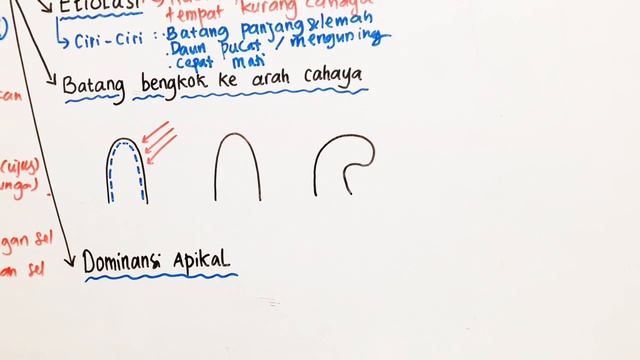 Etiolasi
tempat kurang cahaya
Ciri-Ciri : . Batang panjang & lemah
. Daun pucat / menguning
. cepat mati
Batang bengkok ke arah cahaya
(ujus)
gan sel
an sel
Dominansi Apikal